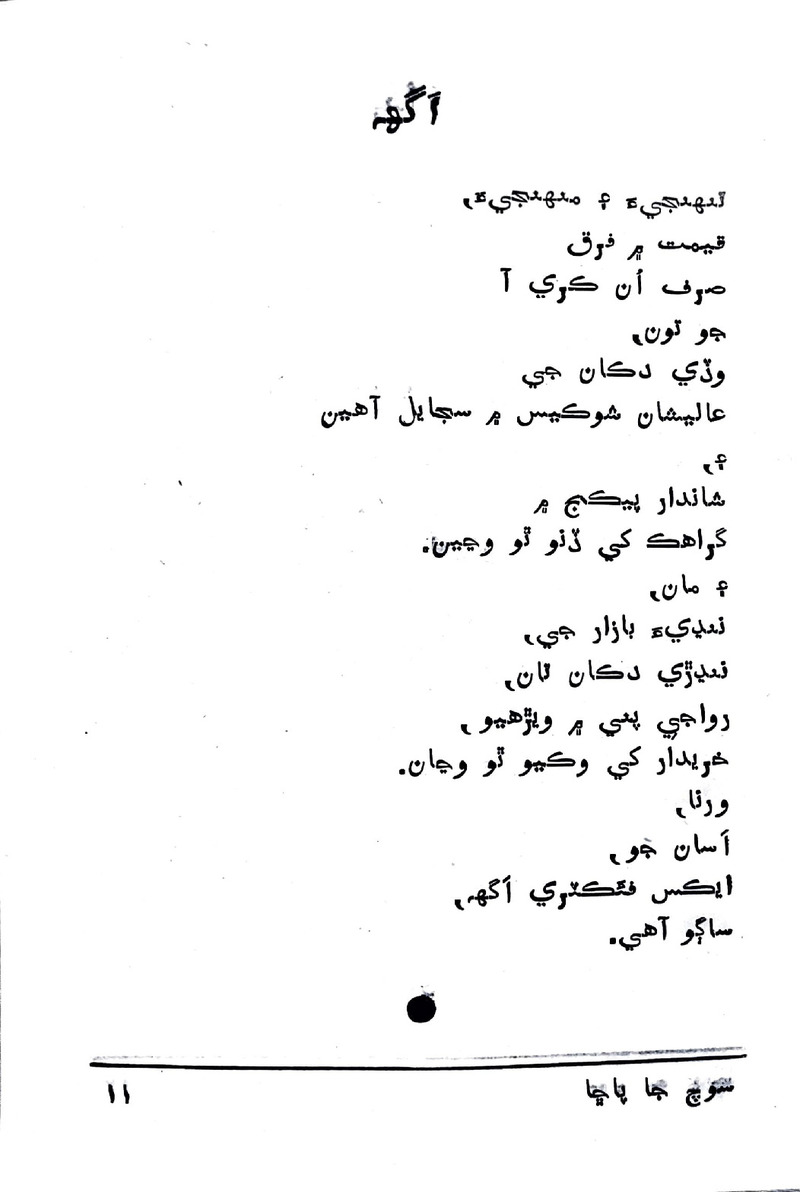 اَگهه
تنهنجيءَ ۽ منهنجيءَ،
قيمت ۾ فرق
صرف اُن ڪري آ
جو تون،
وڏي دڪان جي
عاليشان شوڪيس ۾ سجايل آهين
۽،
شاندار پيڪج ۾
گراهڪ کي ڏنو ٿو وڃين.
۽ مان،
ننڍيءَ بازار جي،
ننڍڙي دڪان تان،
رواجي پني ۾ ويڙهيو،
خريدار کي وڪيو ٿو وڃان.
ورنا،
اَسان جو،
ايڪس فئڪٽري اَگهه،
ساڳو آهي.
سوچ جا پاڇا
۱۱